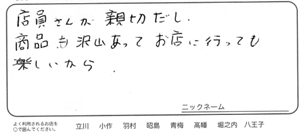 店員さんが親切だし、
商品も沢山あってお店に行っても
楽しいから
ニックネーム
よく利用されるお店を
○で囲んでください。
立川 小作 羽村 昭島 青梅 高幡 堀之内 八王子